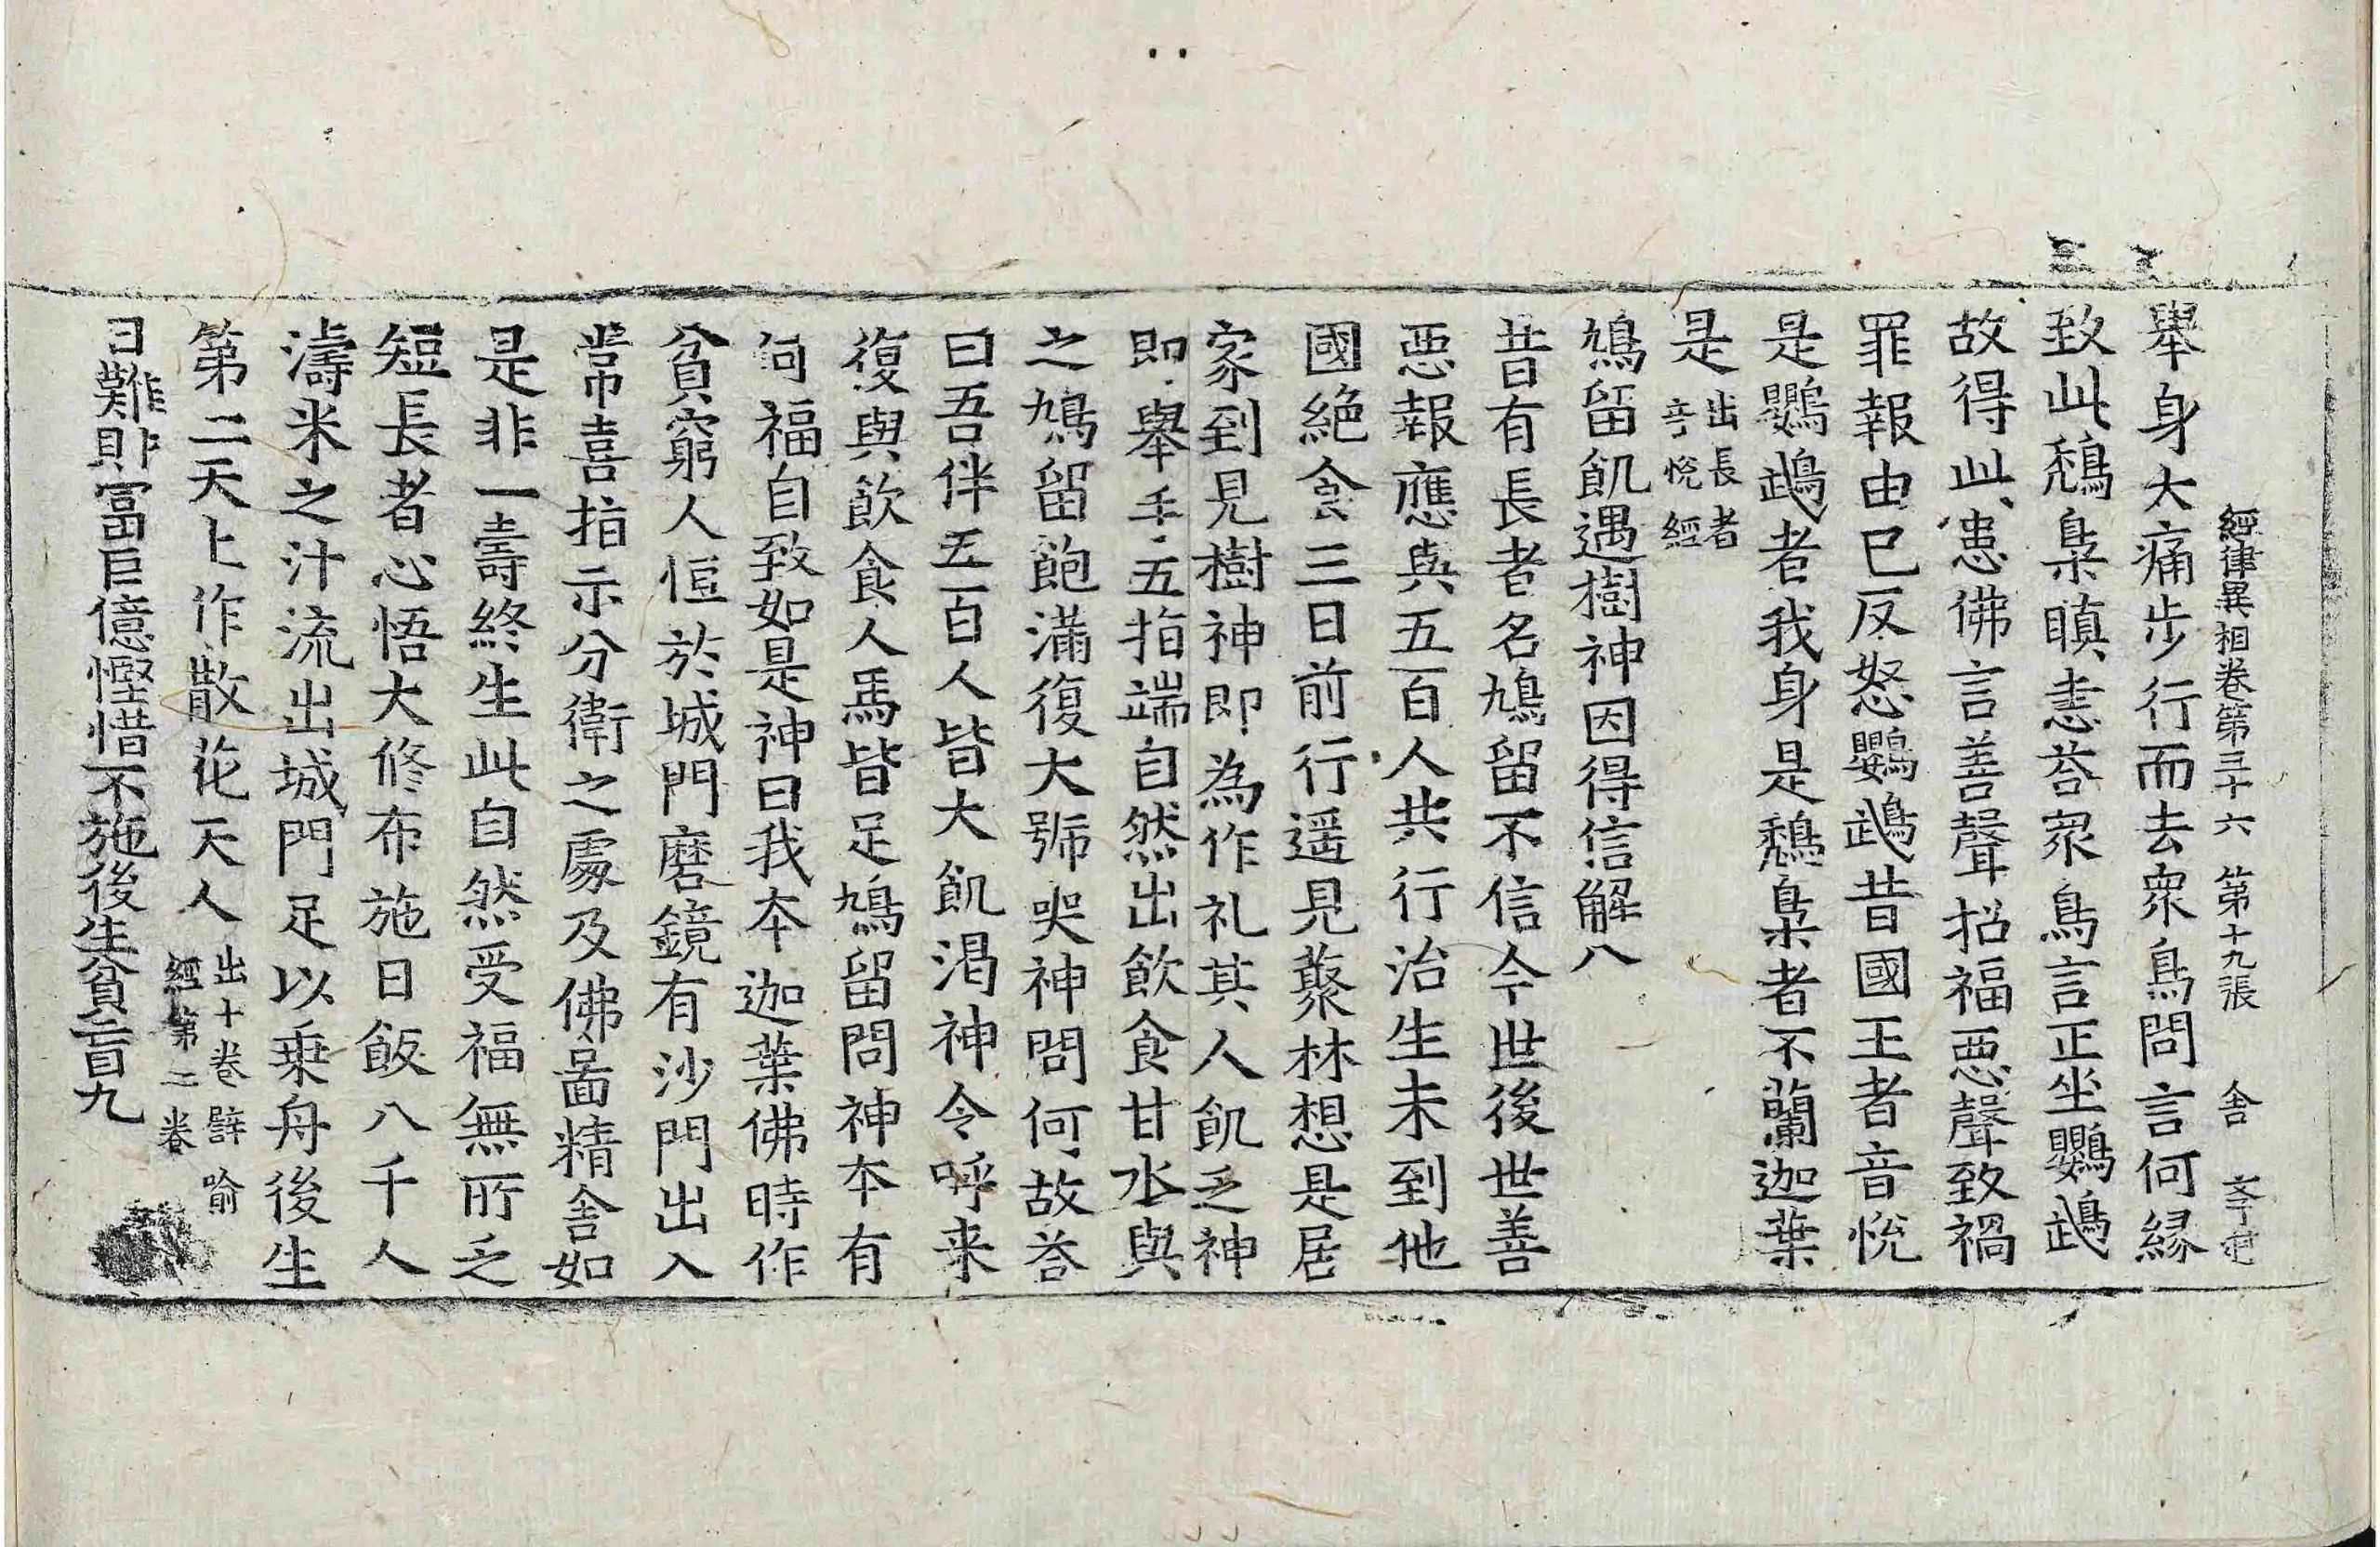 經律異相卷第三十六 第十九張 舍
舉身大痛步行而去衆鳥問言何緣
致此鵚梟瞋恚荅衆鳥言正坐鸚鵡
故得此患佛言善聲招福惡聲致禍
罪報由已反怒鸚鵡昔國王者音悅
是鸚鵡者我身是鵚梟者不蘭迦葉
是出長者音悅經
鳩留飢遇樹神因得信解八
昔有長者名鳩留不信今世後世善
惡報應與五百人共行治生未到他
國絶食三日前行遥見藂林想是居
家到見樹神即為作礼其人飢乏神
即舉手五指端自然出飲食甘水與
之鳩留飽滿復大號哭神問何故荅
曰吾伴五百人皆大飢渴神令呼来
復與飲食人馬皆足鳩留問神本有
何福自致如是神曰我本迦葉佛時作
貧窮人恒於城門磨鏡有沙門出入
常喜指示分衛之處及佛啚精舍如
是非一壽終生此自然受福無所乏
短長者心悟大修布施日飯八千人
濤米之汁流出城門足以乗舟後生
第二天上作散花天人出十卷譬喻經第二卷
日難財冨巨億慳惜不施後生貧盲九